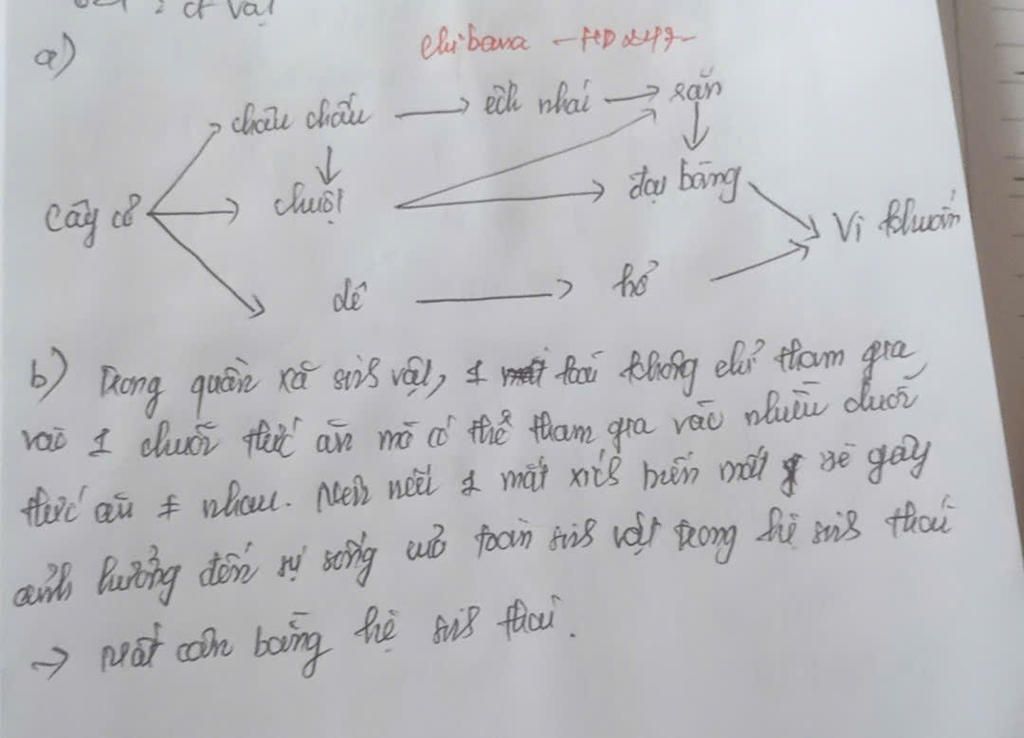 a)
chibana - HD 247
châu chấu → ếch nhái → rắn
Cây cỏ → chuột → đại bàng → Vi khuẩn
dê → hổ
b) Trong quần xã sinh vật, 1 loài không chỉ tham gia
vào 1 chuỗi thức ăn mà có thể tham gia vào nhiều chuỗi
thức ăn ≠ nhau. Nên nếu 1 mắt xích biến mất sẽ gây
ảnh hưởng đến sự sống của toàn sinh vật trong hệ sinh thái
→ Mất cân bằng hệ sinh thái.